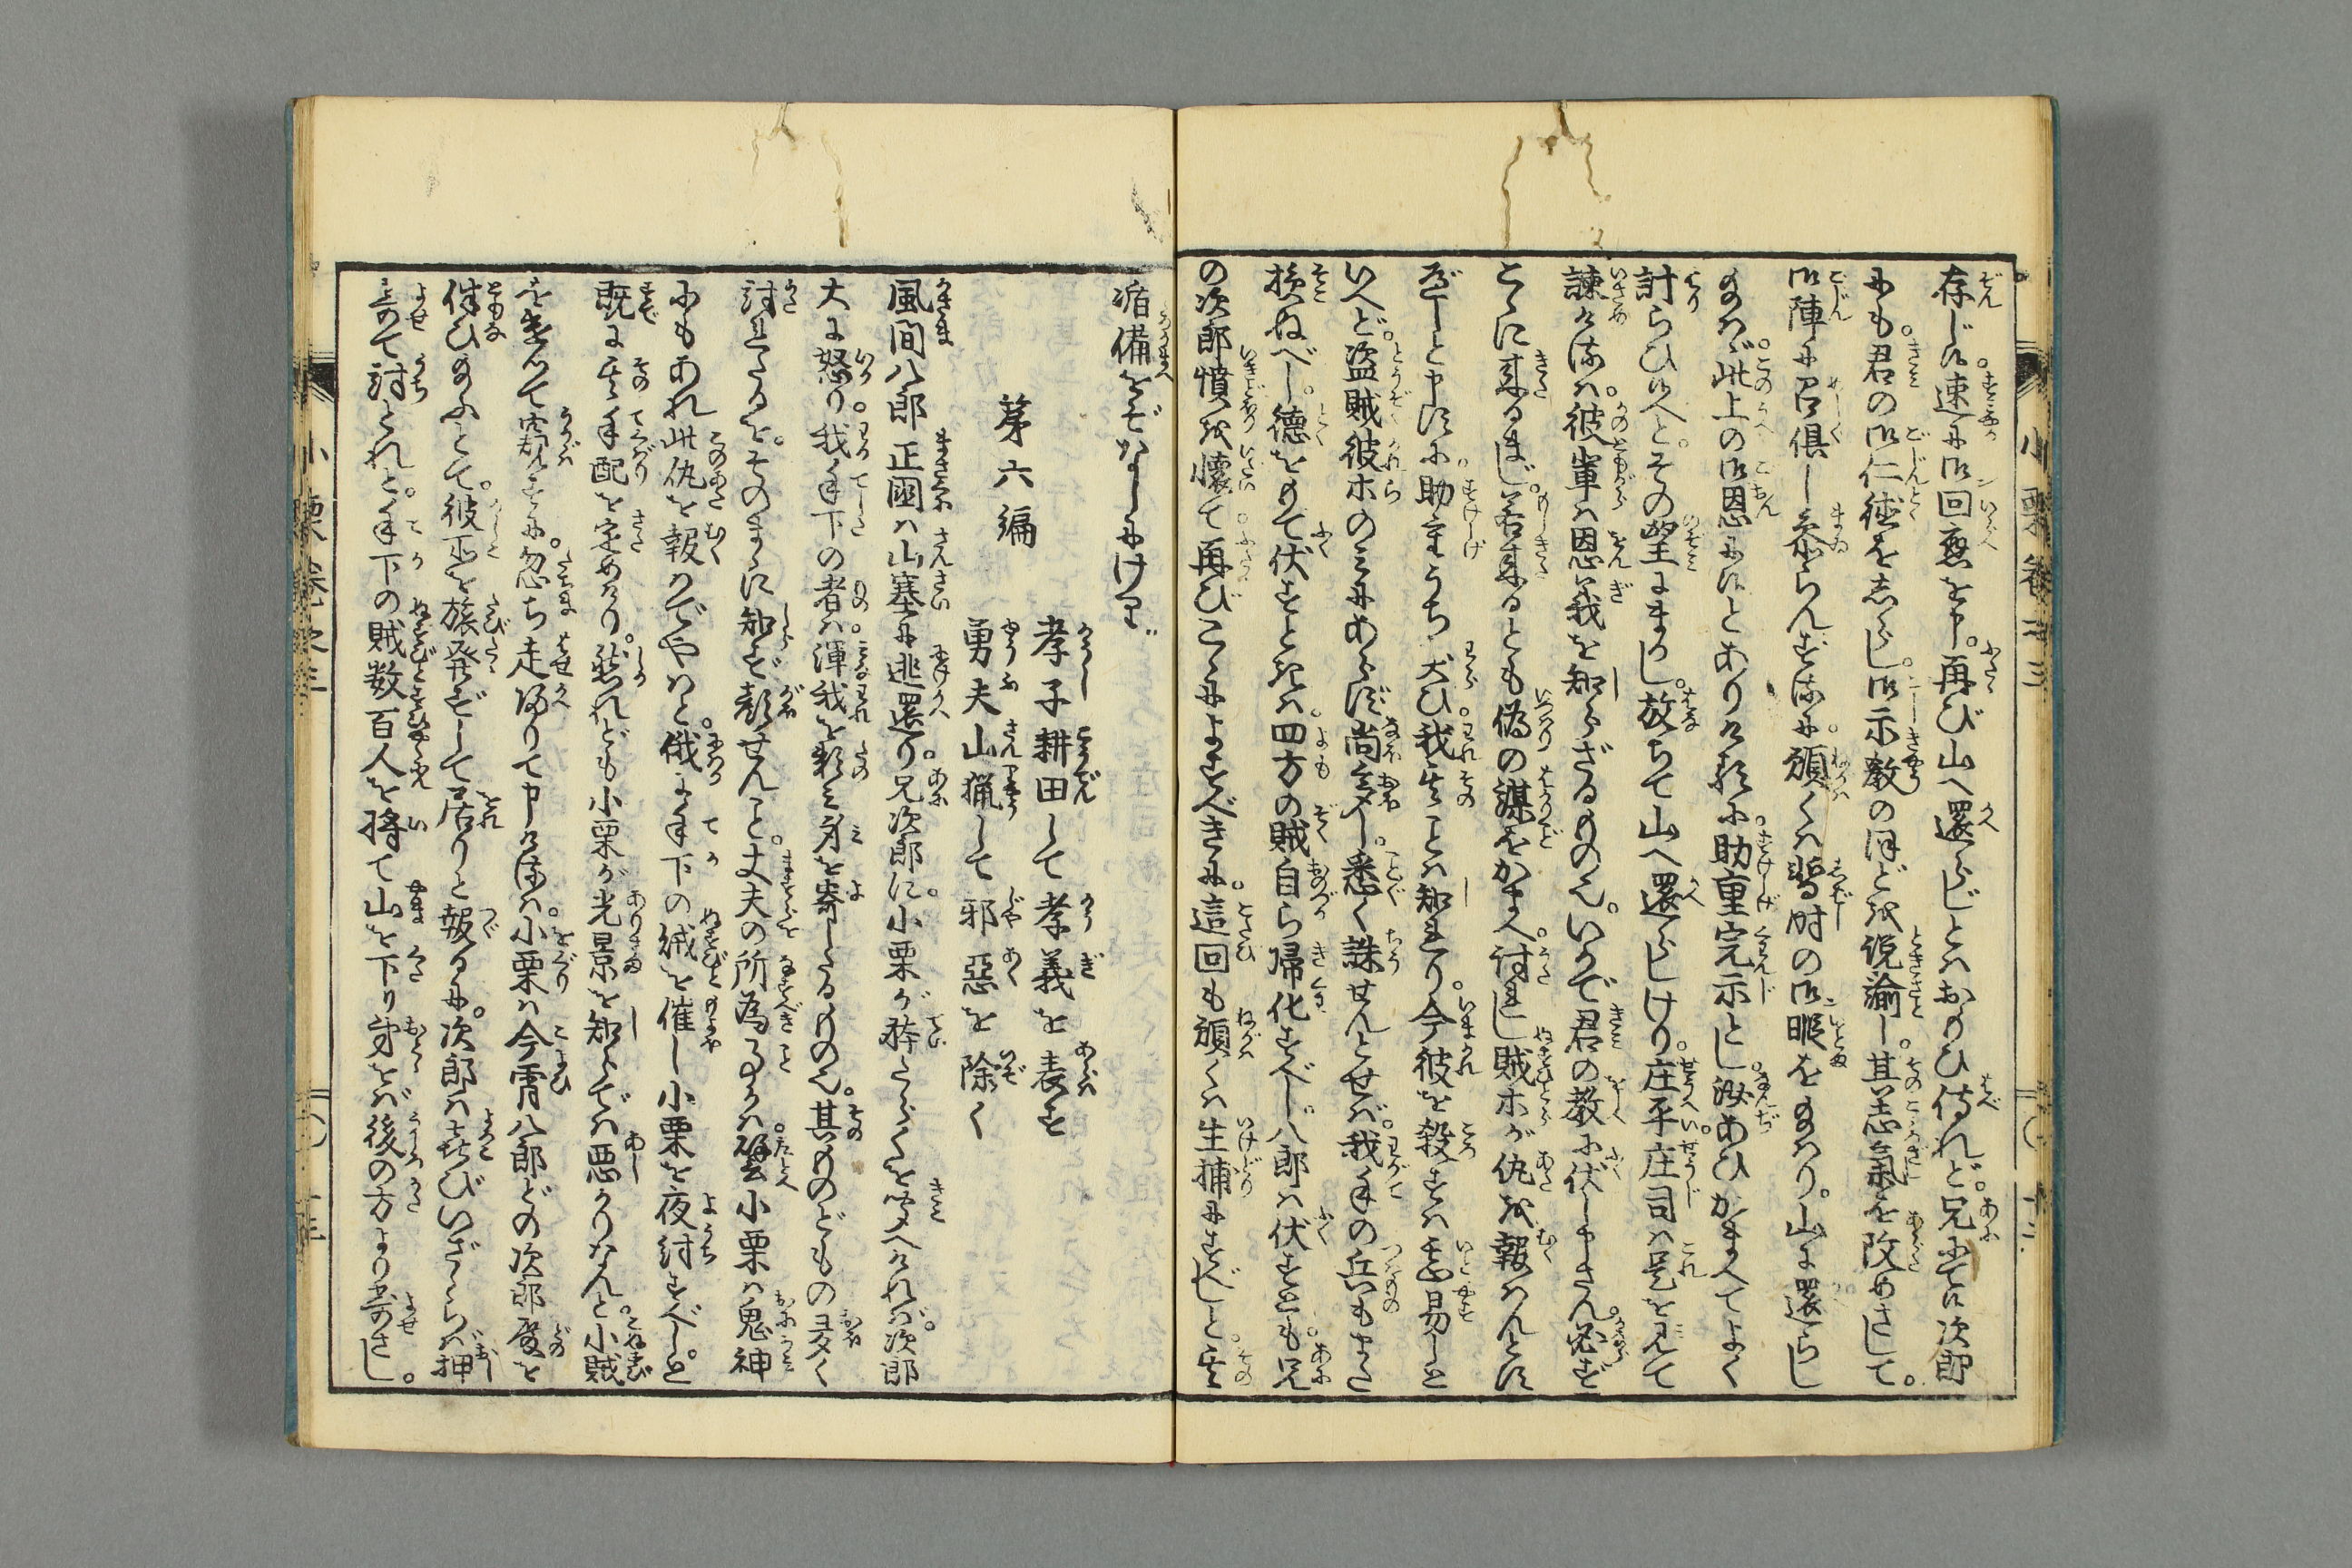 存じ候。速に御回應を申。再び山へ還らじとはおもひ侍れど。兄にて候次郎
にも。君の御仁徳をしらし。御示教のほどを説諭し。其志氣を改めさして。
御陣に召倶し参らんずるに。願くは暫時の御暇をたまはり。山に還らし
たまはゞ。此上の御恩に候とありければ。助重完示とし。汝あひかまへてよく
計らひ候へと。その望にまかし。放ちて山へ還らしけり。庄平庄司は是を見て
諫めけるは。彼輩は恩義を知らざるものなり。いかで君の教に伏し申さん。必ず
こゝに来るまじ。若来るとも偽の謀をかまへ。討れし賊ホが仇を報はんとに
ぞ。と申に。助重うち笑ひ。我其ことは知れり。今彼を殺すはいと易しと
いへど。盗賊彼ホのみにあらず。尚多し。悉く誅せんとせば。我手の兵もまた
損ぬべし。德をもて伏するときは。四方の賊自ら帰化すべし。八郎は伏すとも。兄
の次郎憤を懐て。再びこゝによすべきに。這回も願くは生捕にすべしと。其
准備をぞなしにける
第六編
孝子耕田して孝義を表す
勇夫山猟して邪惡を除く
風間八郎正国は山塞に逃還り。兄次郎に。小栗が為体を聞へければ。次郎
大に怒り。我手下の者は。渾我を頼み身を寄したるものなり。其ものどもの多く
討れたるを。そのまゝに知らず顔せんこと。丈夫の所為ならず。譬小栗は鬼神
にもあれ此仇を報はでやはと。俄に手下の賊を催し小栗を夜討すべしと
既に其手配を定めけり。然れども小栗が光景を知らでは悪かりなんと。小賊
をもて窺するに。忽ち走帰りて申けるは。小栗は今宵八郎どの次郎殿を
伴ひたまふとて。彼所を旅発ずして居りと報るに。次郎は喜びいざさらば押
寄て討とれと。手下の賊数百人を将て山を下り。身をば後の方より寄さし。
小栗巻之三
十三